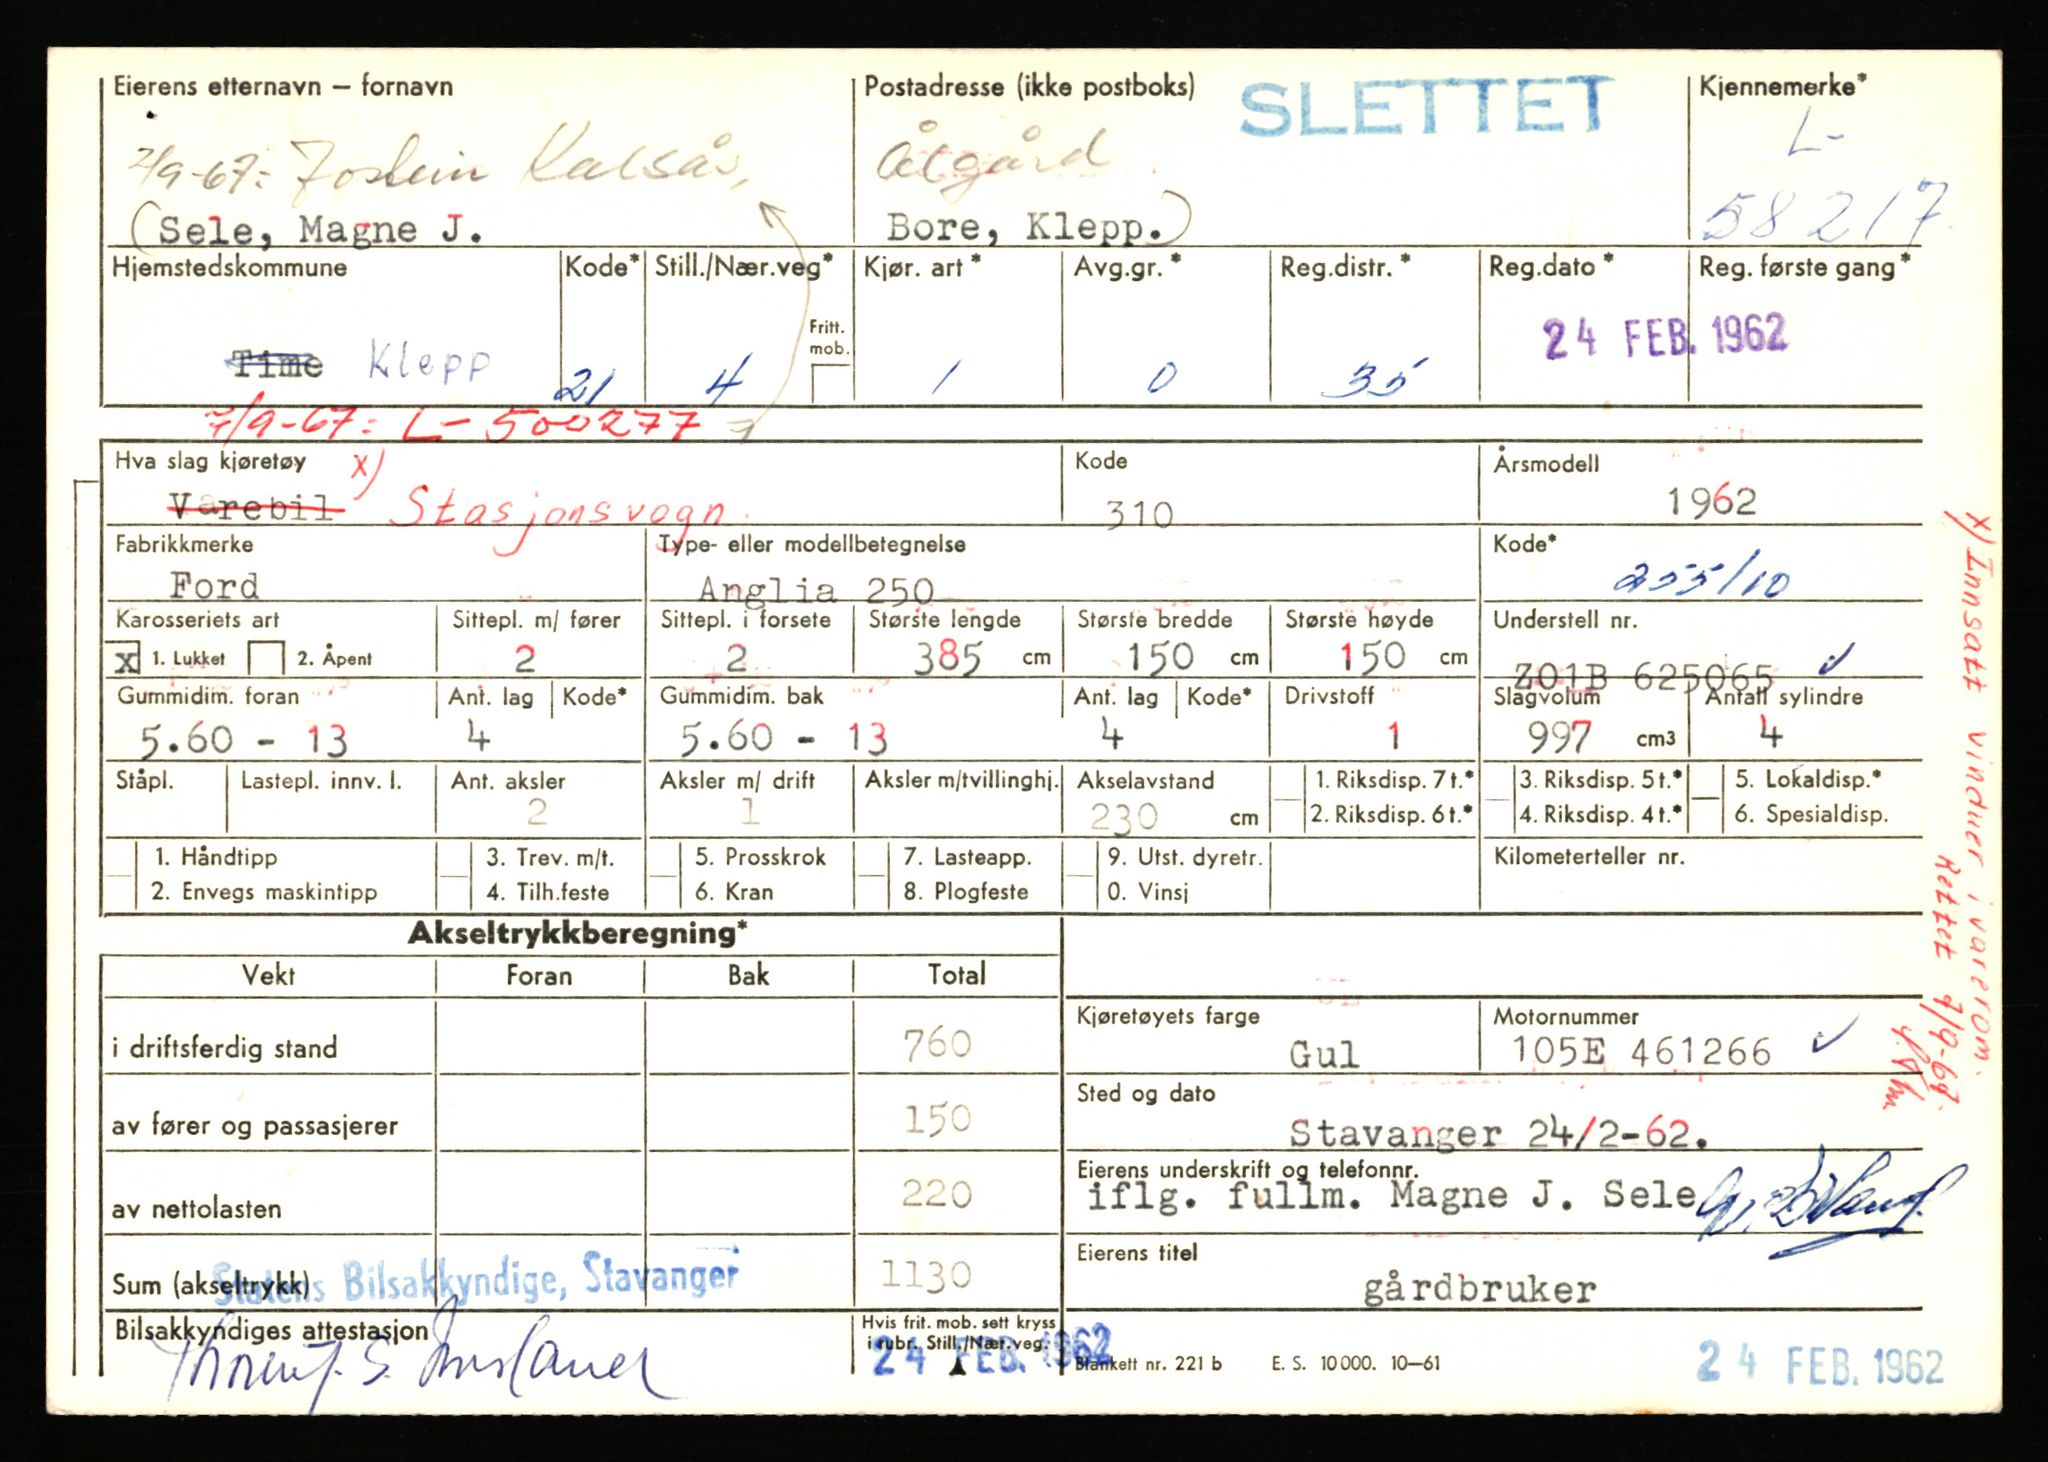 Eierens etternavn – fornavn
Postadresse (ikke postboks)
SLETTET
Kjennemerke*
7/9-67: Jostein Kalsås,
Ålgård
L-
(Sele, Magne J.
Bore, Klepp.)
58217
Hjemstedskommune
Kode*
Still./Nær.veg*
Kjør. art*
Avg.gr.*
Reg.distr.*
Reg.dato*
Reg. første gang*
Fritt. mob.
24 FEB. 1962
Time Klepp
21
4
1
0
35
7/9-67: L-500277
Hva slag kjøretøy x)
Kode
Årsmodell
Varebil Stasjonsvogn.
310
1962
Fabrikkmerke
Type- eller modellbetegnelse
Kode*
Ford
Anglia 250
255/10
Karosseriets art
Sittepl. m/ fører
Sittepl. i forsete
Største lengde
Største bredde
Største høyde
Understell nr.
x 1. Lukket 2. Åpent
2
2
385 cm
150 cm
150 cm
Z01B 625065
Gummidim. foran
Ant. lag
Kode*
Gummidim. bak
Ant. lag
Kode*
Drivstoff
Slagvolum
Antall sylindre
5.60 - 13
4
5.60 - 13
4
1
997 cm3
4
Ståpl.
Lastepl. innv. l.
Ant. aksler
Aksler m/ drift
Aksler m/tvillinghj.
Akselavstand
1. Riksdisp. 7t.*
3. Riksdisp. 5t.*
5. Lokaldisp.*
2
1
230 cm
2. Riksdisp. 6t.*
4. Riksdisp. 4t.*
6. Spesialdisp.
1. Håndtipp
3. Trev. m/t.
5. Prosskrok
7. Lasteapp.
9. Utst. dyretr.
Kilometerteller nr.
2. Envegs maskintipp
4. Tilh.feste
6. Kran
8. Plogfeste
0. Vinsj
Akseltrykkberegning*
Vekt
Foran
Bak
Total
i driftsferdig stand
760
Kjøretøyets farge
Motornummer
Gul
105E 461266
av fører og passasjerer
150
Sted og dato
Stavanger 24/2-62.
av nettolasten
220
Eierens underskrift og telefonnr.
iflg. fullm. Magne J. Sele
Sum (akseltrykk)
1130
Statens Bilsakkyndige, Stavanger
Eierens titel
gårdbruker
Bilsakkyndiges attestasjon
Hvis frit. mob. sett kryss
i rubr. Still./Nær.veg.
24 FEB. 1962
Blankett nr. 221 b E. S. 10 000. 10–61
24 FEB. 1962
x) Innsatt vinduer i varerom.
Rettet 7/9-67.